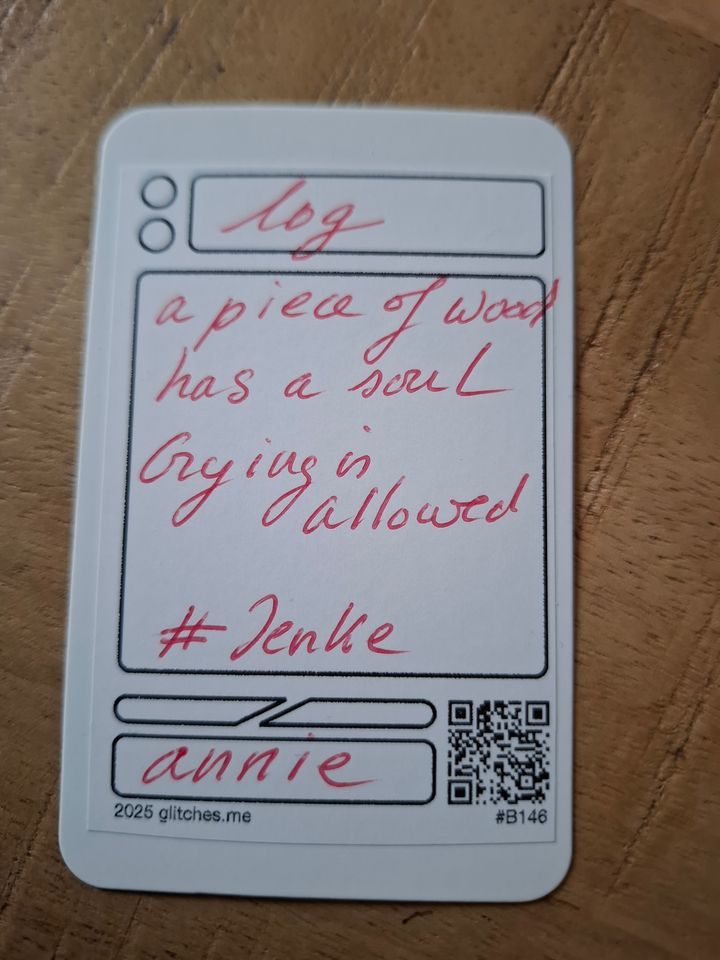 log
a piece of wood
has a soul
Crying is
allowed
# Jenke
annie
2025 glitches.me
#B146